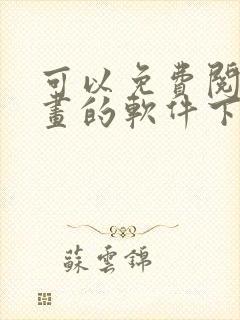 可以免費閱
畫的軟件下
蘇雲錦